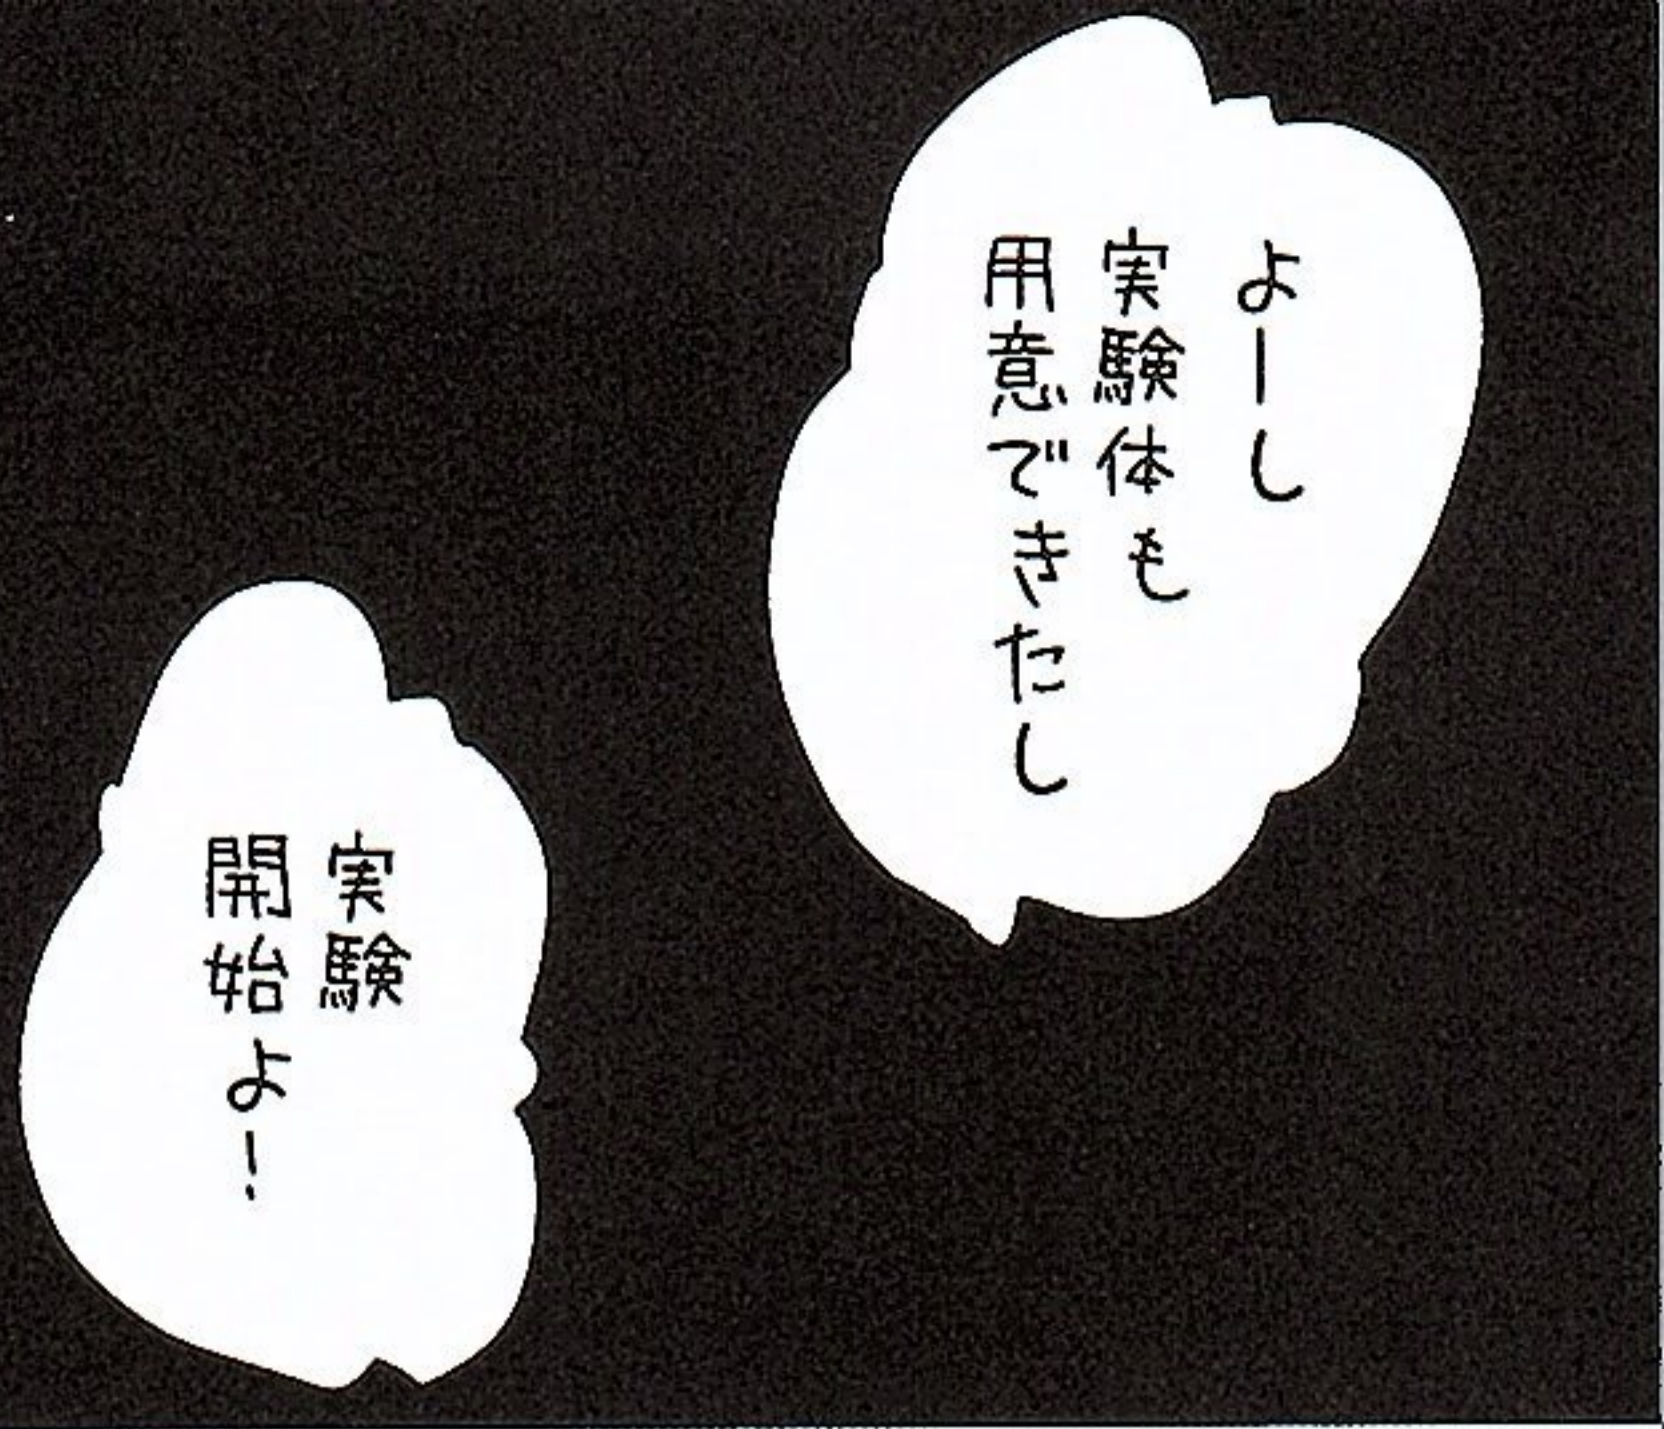 よーし
実験体も
用意できたし
実験
開始よ!